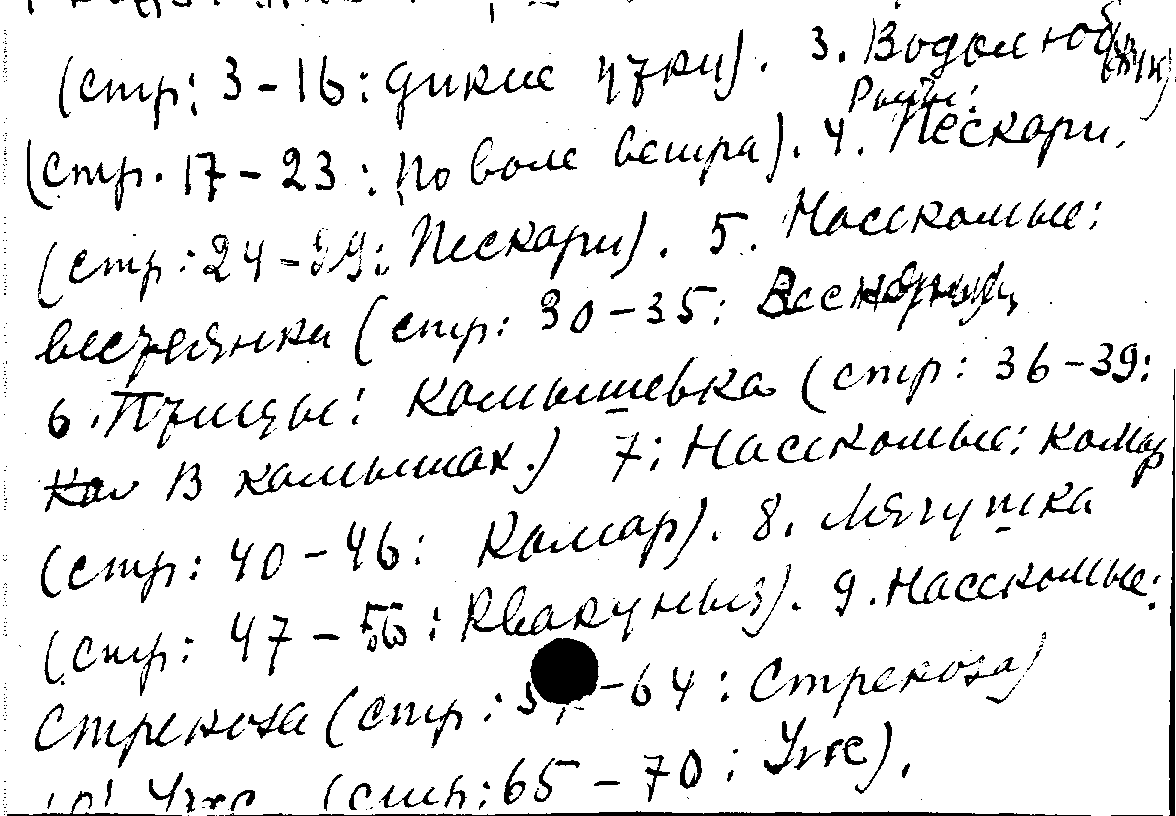 (стр: 3-16: дикие утки). 3. Водолюб (жук)
(стр. 17-23: По воле ветра). 4. Рыбы: Пескари.
(стр: 24-29: Пескари). 5. Насекомые:
веснянка (стр: 30-35:
6. Птицы: Камышевка (стр: 36-39:
В камышах.) 7: Насекомые: комар
(стр: 40-46: Комар). 8. Лягушка
(стр: 47-56: Квакунья). 9. Насекомые:
Стрекоза (стр: 57-64: Стрекоза)
10. Уже (стр: 65-70: Уже).